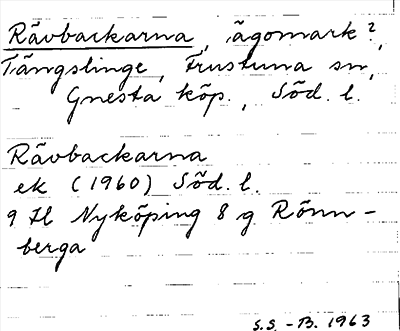 Rävbackarna, ägomark?,
Tängslinge, Frustuna sn,
Gnesta köp., Söd. l.
Rävbackarna
ek (1960) Söd. l.
9 H Nyköping 8 g Rönn-
berga
S.S. -B. 1963